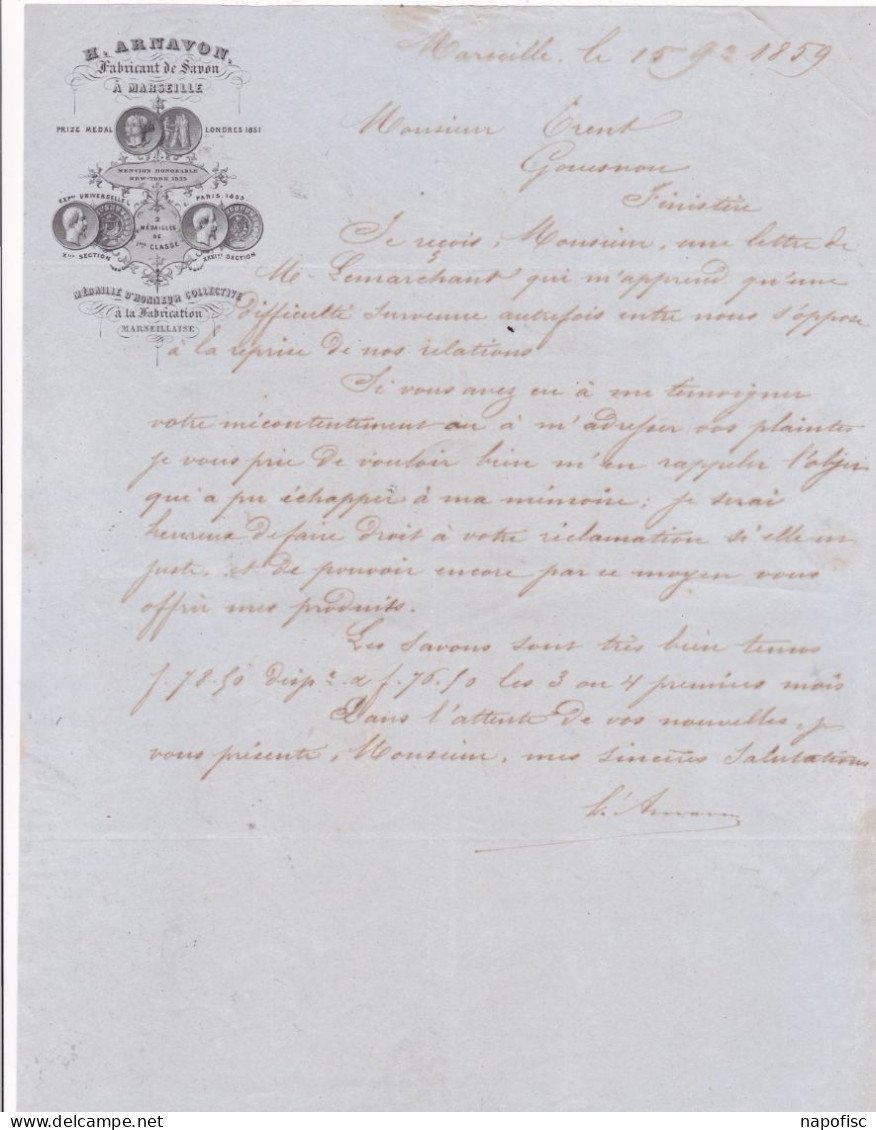 H. ARNAVON,
Fabricant de Savon
À MARSEILLE
PRIZE MEDAL LONDRES 1851
MENTION HONORABLE
NEW-YORK 1853
EXPON UNIVERSELLE PARIS, 1855
2
MÉDAILLES
DE
1ère CLASSE
Xme SECTION XXXIme SECTION
MÉDAILLE D'HONNEUR COLLECTIVE
à la Fabrication
MARSEILLAISE
Marseille, le 15 9re 1859
Monsieur Erent
Gouesnou
Finistère
Je reçois, Monsieur, une lettre de
M. Lemarchant qui m'apprend qu'une
difficulté survenue autrefois entre nous s'oppose
à la reprise de nos relations
Si vous avez eu à me témoigner
votre mécontentement ou à m'adresser vos plaintes
je vous prie de vouloir bien m'en rappeler l'objet
qui a pu échapper à ma mémoire; je serai
heureux de faire droit à votre réclamation si elle est
juste, et de pouvoir encore par ce moyen vous
offrir mes produits.
Les Savons sont très bien tenus
f. 78.50 disp. & f. 76.50 les 3 ou 4 premiers mois
Dans l'attente de vos nouvelles, je
vous présente, Monsieur, mes sincères Salutations
h. Arnavon
napofisc